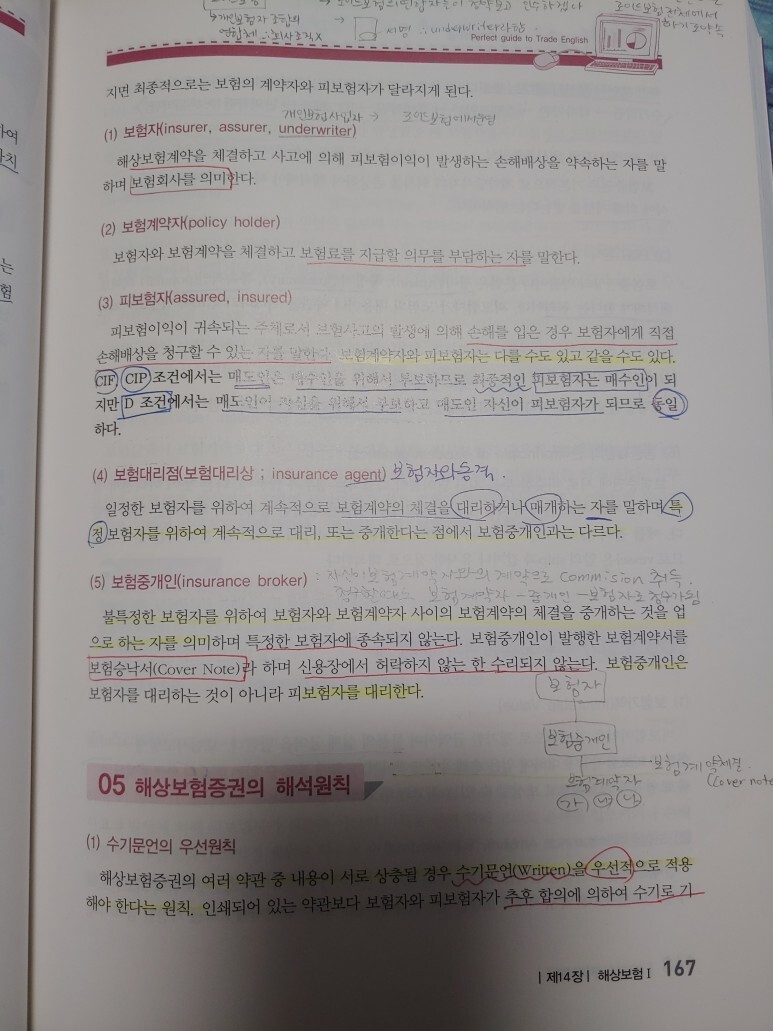 개인보험자 조합의
연합체 ∴ 회사조직X
서명 ∴ underwriter
하기로 약속
Perfect guide to Trade English
지면 최종적으로는 보험의 계약자와 피보험자가 달라지게 된다.
개인보험사업자 →
(1) 보험자(insurer, assurer, underwriter)
해상보험계약을 체결하고 사고에 의해 피보험이익이 발생하는 손해배상을 약속하는 자를 말
하며 보험회사를 의미한다.
(2) 보험계약자(policy holder)
보험자와 보험계약을 체결하고 보험료를 지급할 의무를 부담하는 자를 말한다.
(3) 피보험자(assured, insured)
피보험이익이 귀속되는 주체로서 보험사고의 발생에 의해 손해를 입은 경우 보험자에게 직접
손해배상을 청구할 수 있는 자를 말한다. 보험계약자와 피보험자는 다를 수도 있고 같을 수도 있다.
CIF, CIP 조건에서는 매도인은 매수인을 위해서 부보하므로 최종적인 피보험자는 매수인이 되
지만 D 조건에서는 매도인이 자신을 위해서 부보하고 매도인 자신이 피보험자가 되므로 동일
하다.
(4) 보험대리점(보험대리상 ; insurance agent) 보험자와 동격.
일정한 보험자를 위하여 계속적으로 보험계약의 체결을 대리하거나 매개하는 자를 말하며 특
정보험자를 위하여 계속적으로 대리, 또는 중개한다는 점에서 보험중개인과는 다르다.
(5) 보험중개인(insurance broker) : 자신이 보험계약자와의 계약으로 Commision 취득.
청구할때도 보험계약자 - 중개인 - 보험자로 청구가됨
불특정한 보험자를 위하여 보험자와 보험계약자 사이의 보험계약의 체결을 중개하는 것을 업
으로 하는 자를 의미하며 특정한 보험자에 종속되지 않는다. 보험중개인이 발행한 보험계약서를
보험승낙서(Cover Note)라 하며 신용장에서 허락하지 않는 한 수리되지 않는다. 보험중개인은
보험자를 대리하는 것이 아니라 피보험자를 대리한다.
보험자
보험중개인
보험계약체결.
보험계약자
(Cover note
05 해상보험증권의 해석원칙
(1) 수기문언의 우선원칙
해상보험증권의 여러 약관 중 내용이 서로 상충될 경우 수기문언(Written)을 우선적으로 적용
해야 한다는 원칙. 인쇄되어 있는 약관보다 보험자와 피보험자가 추후 합의에 의하여 수기로 기
| 제14장 | 해상보험 I 167